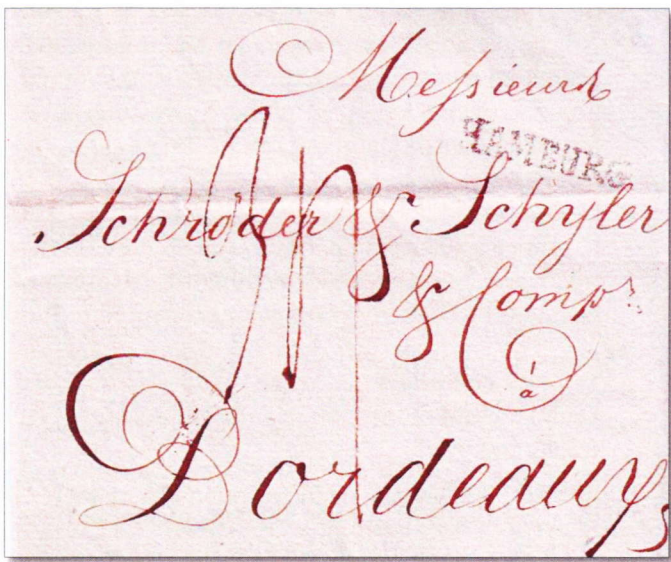 Messieurs
HAMBURG
Schröder & Schyler
& Comp.
à
Bordeaux